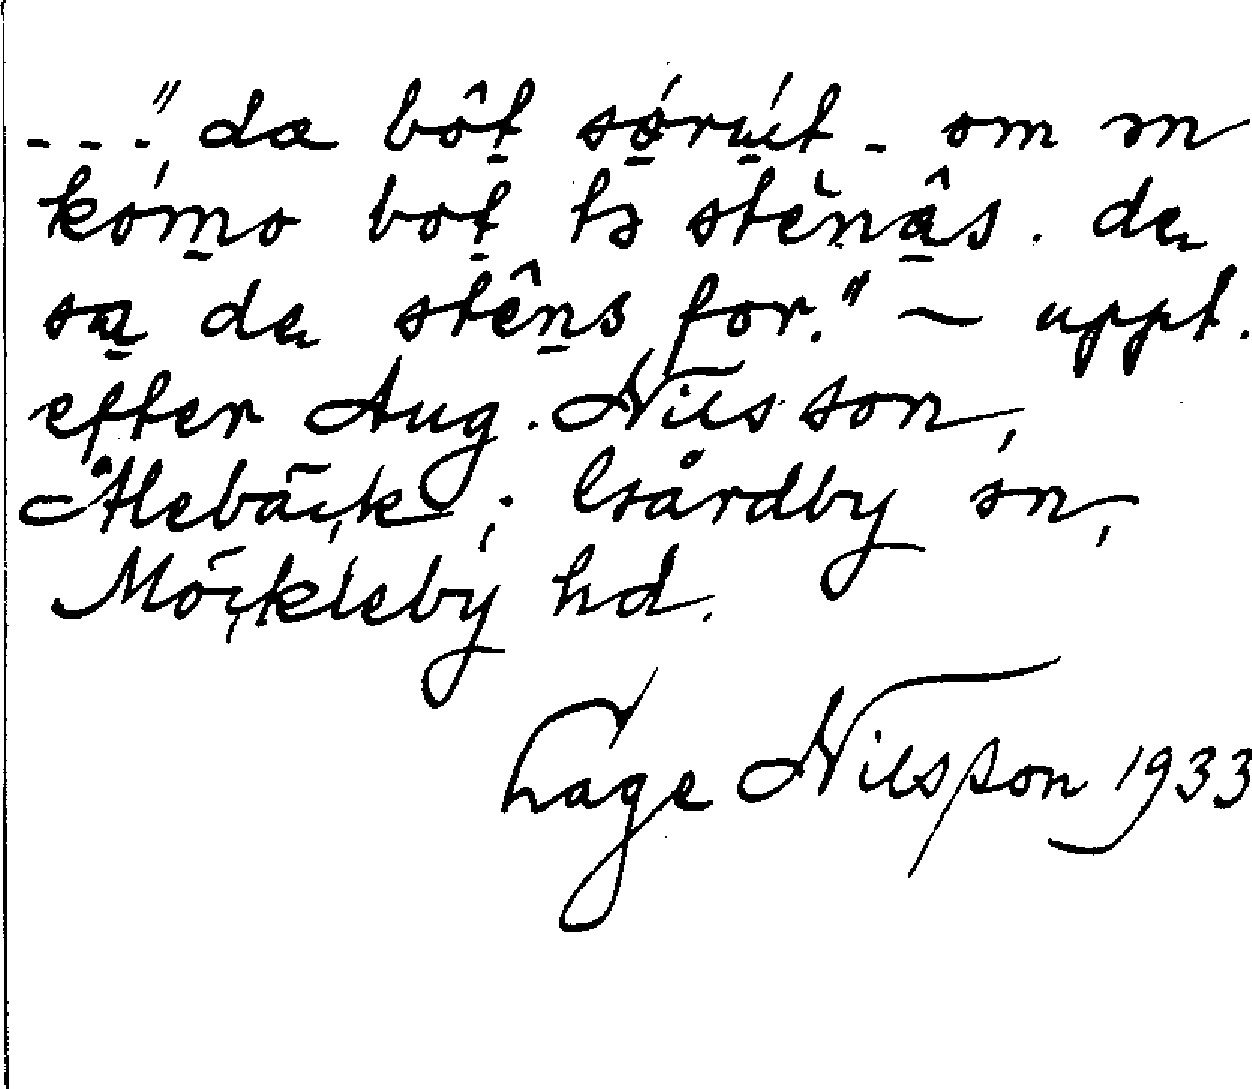 ---." da bôt sørút - om ɜn
kómo bot tɜ stènâs. dɑ
sa dɑ stêns for." — uppt.
efter Aug. Nilsson,
Ålebäck; Gårdby sn,
Möckleby hd.
Gage Nilsson 1933